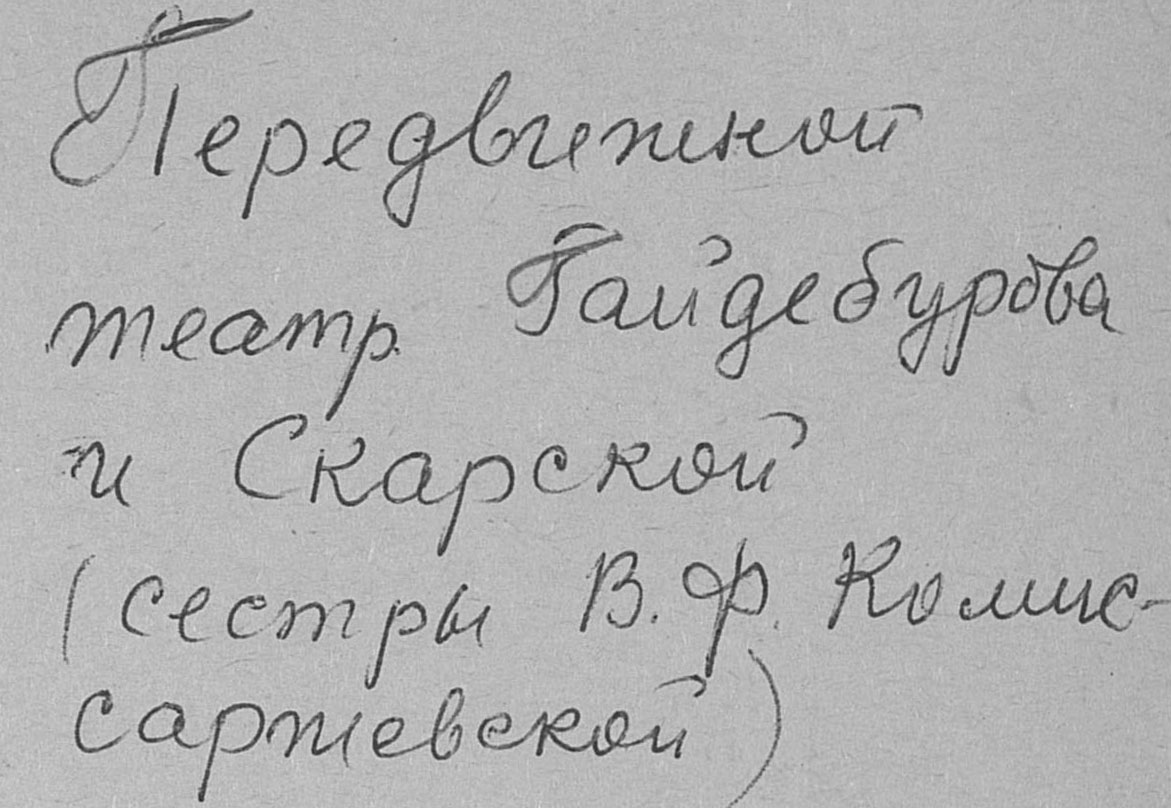 Передвижной
театр Гайдебурова
и Скарской
(сестры В. Ф. Комис-
саржевской)